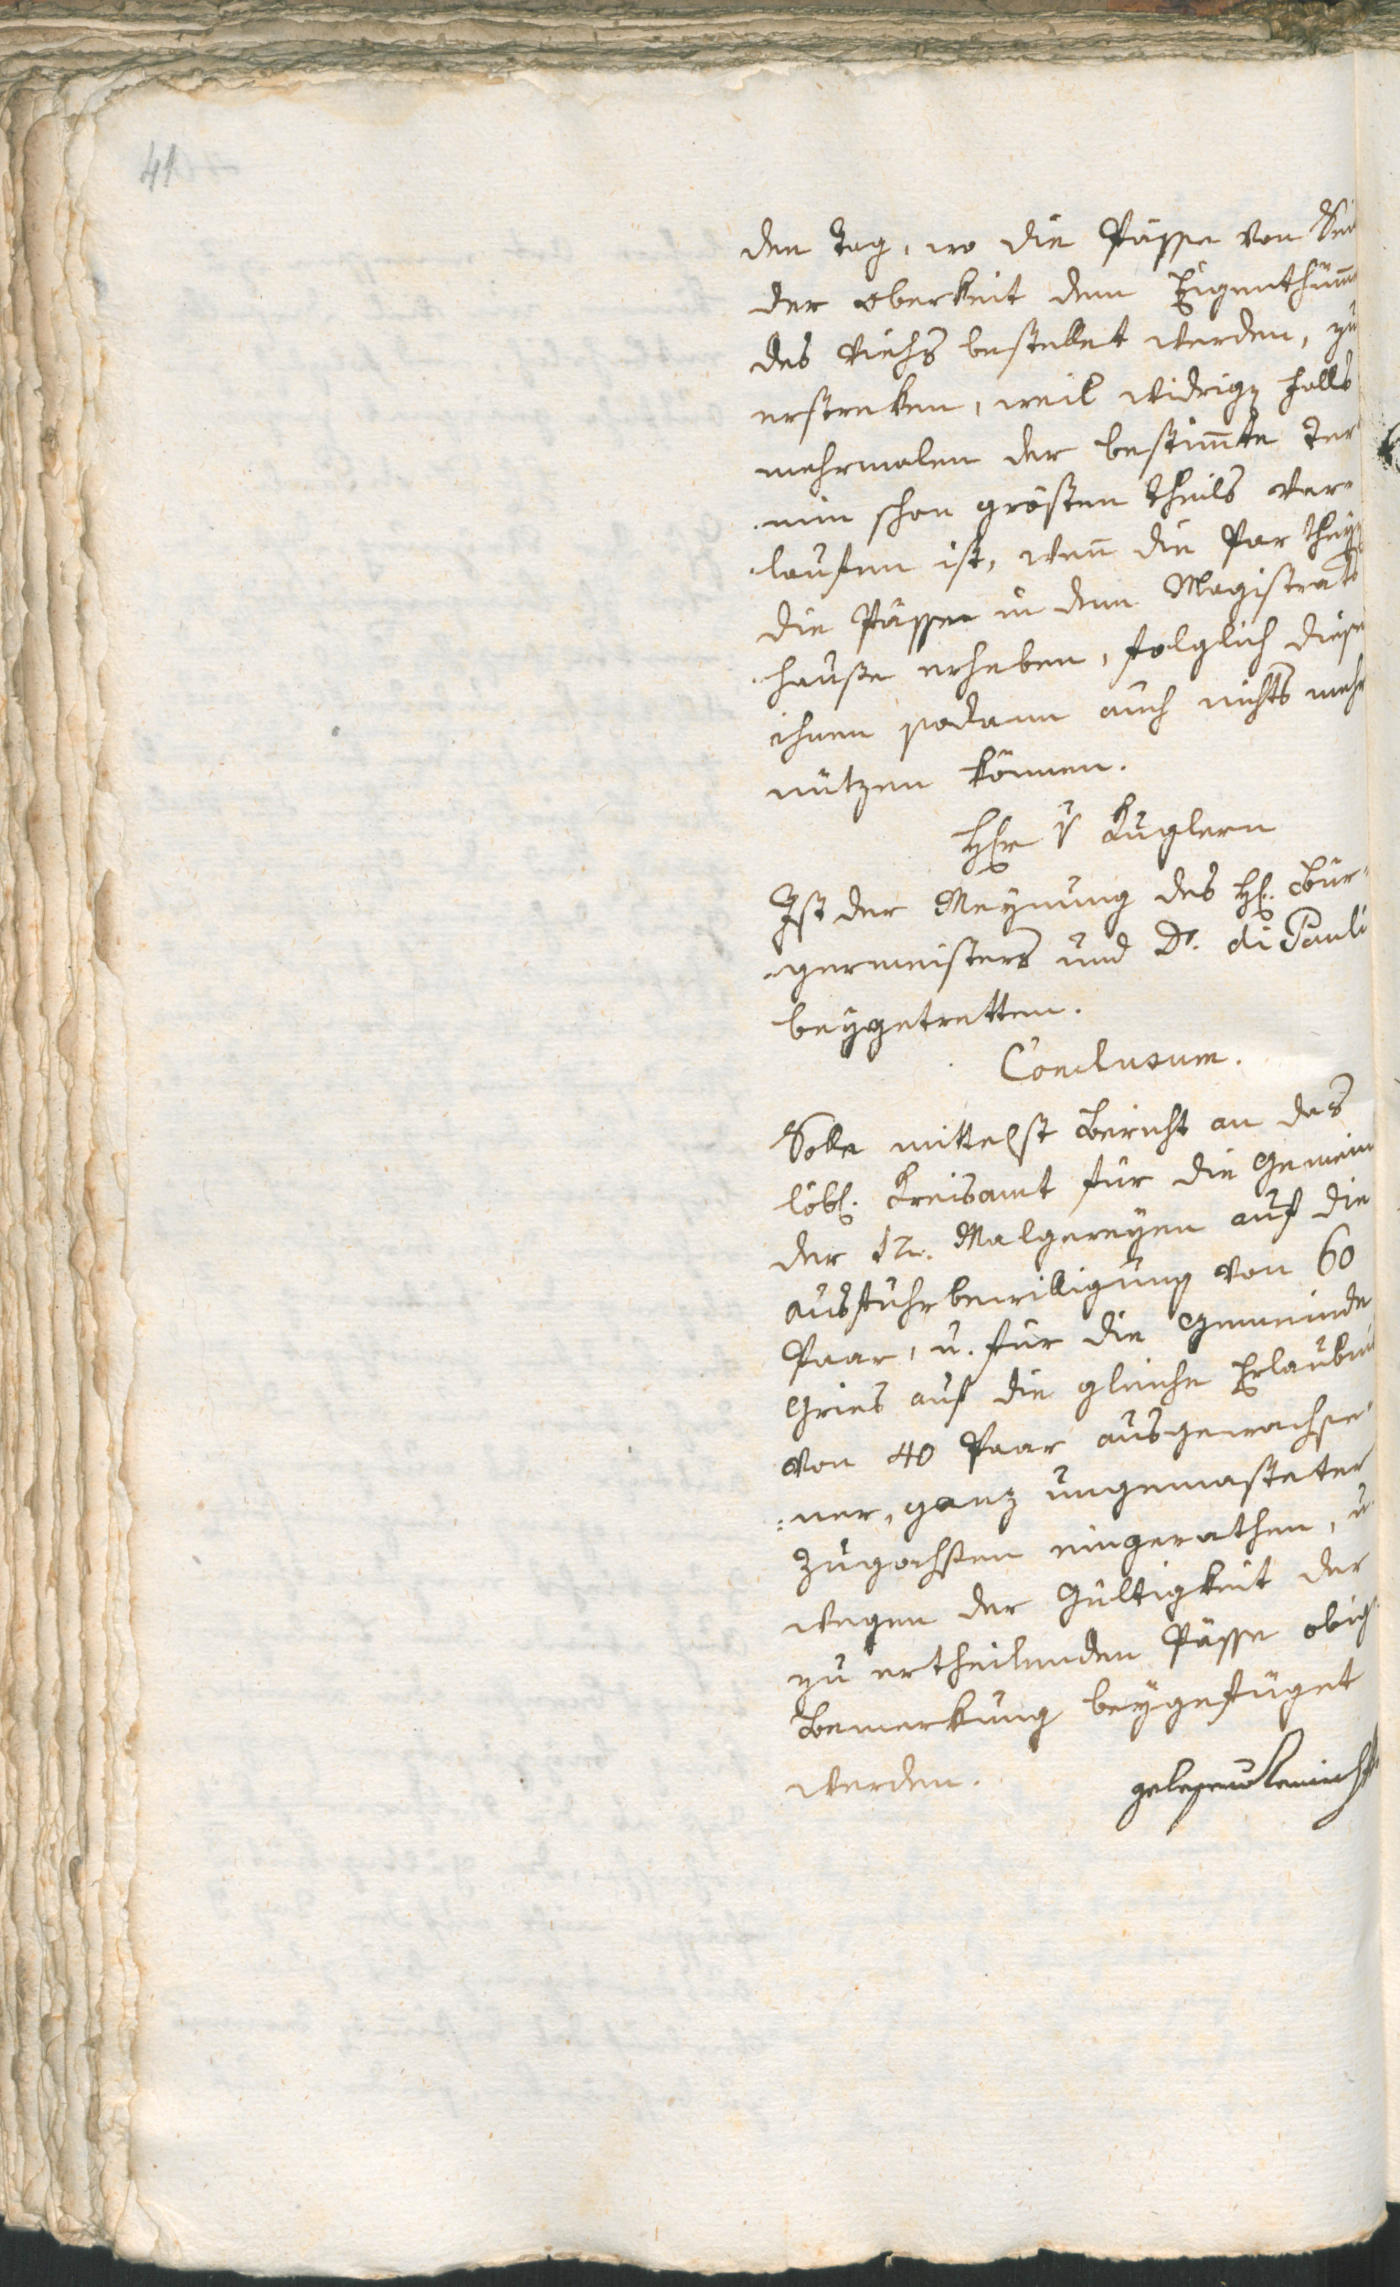 41
den Tag, wo die Pässe von Sei
der Oberkeit dem Eigenthümm
des Viehs bestellet werden, zu
erstreken, weil widrigen falls
mehrmalen der bestim̄te Ter¬
min schon grösten theils ver¬
laufen ist, wen̄ die Partheyen
die Pässe in dem Magistrats
hauße erheben, folglich diese
ihnen sodann auch nichts mehr
nützen können.
H[err] v Kuglern
Ist der Meynung des H. Bür¬
germeisters und Dr. di Pauli
beygetretten.
Conclusum.
Solle mittelst Bericht an das
löbl. Kreisamt für die Gemein
der 12. Malgereyen auf die
ausfuhrbewilligung von 60
Paar, u. für die Gemeinde
Gries auf die gleiche Erlaubni
von 40 Paar ausgewachse¬
ner, ganz ungemasteter
Zugochsen eingerathen, u.
wegen der Gültigkeit der
zu ertheilenden Pässe obig
Bemerkung beygefüget
werden.
gelesen